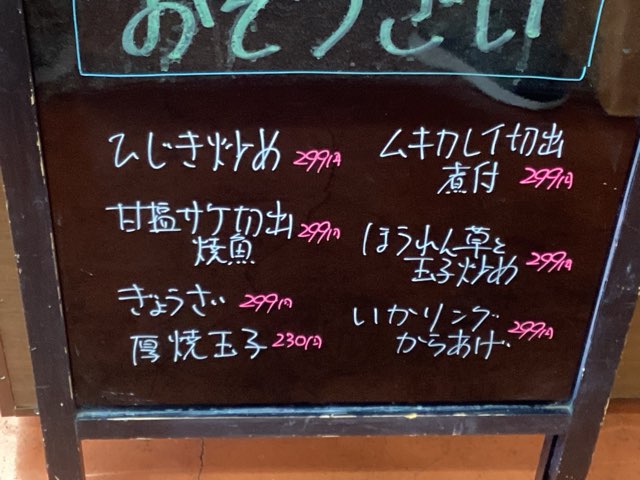 おそうざい
ひじき炒め 299円
甘塩サケ切出
焼魚 299円
ぎょうざ 299円
厚焼玉子 230円
ムキカレイ切出
煮付 299円
ほうれん草と
玉子炒め 299円
いかリング
からあげ 299円